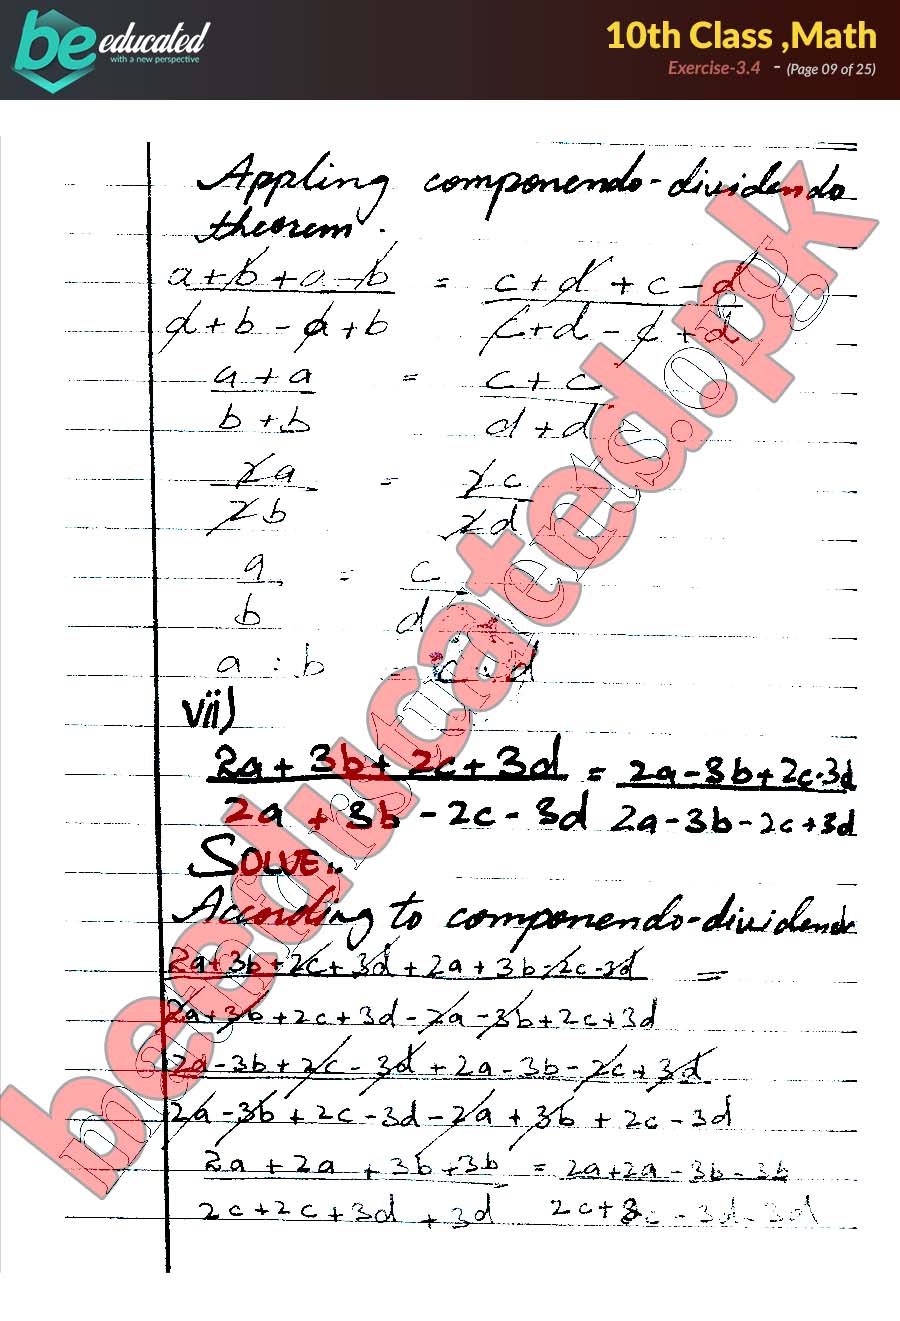 be educated
with a new perspective
10th Class ,Math
Exercise-3.4 - (Page 09 of 25)
Appling componendo-dividendo
theorem.
a + b + a - b = c + d + c - d
a + b - a + b c + d - c + d
a + a = c + c
b + b d + d
2a = 2c
2b 2d
a = c
b d
a : b = c : d
vii)
2a + 3b + 2c + 3d = 2a - 3b + 2c - 3d
2a + 3b - 2c - 3d 2a - 3b - 2c + 3d
SOLVE:.
According to componendo-dividendo
2a + 3b + 2c + 3d + 2a + 3b - 2c - 3d =
2a + 3b + 2c + 3d - 2a - 3b + 2c + 3d
2a - 3b + 2c - 3d + 2a - 3b - 2c + 3d
2a - 3b + 2c - 3d - 2a + 3b + 2c - 3d
2a + 2a + 3b + 3b = 2a + 2a - 3b - 3b
2c + 2c + 3d + 3d 2c + 2c - 3d - 3d
beeducated.pk